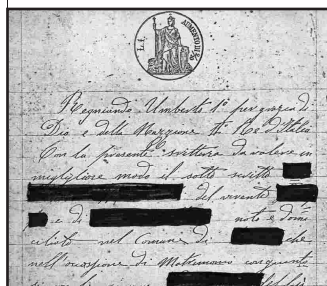 L. E. AUMENTO DI 2/10
Regnando Umberto 1º per grazia di
Dio e della Nazione Re d'Italia
Con la presente scrittura da valere in
migliore modo il sotto scritto
del vivente
e di nato e domi
ciliato nel Comune di che
nell'occasione di Matrimonio